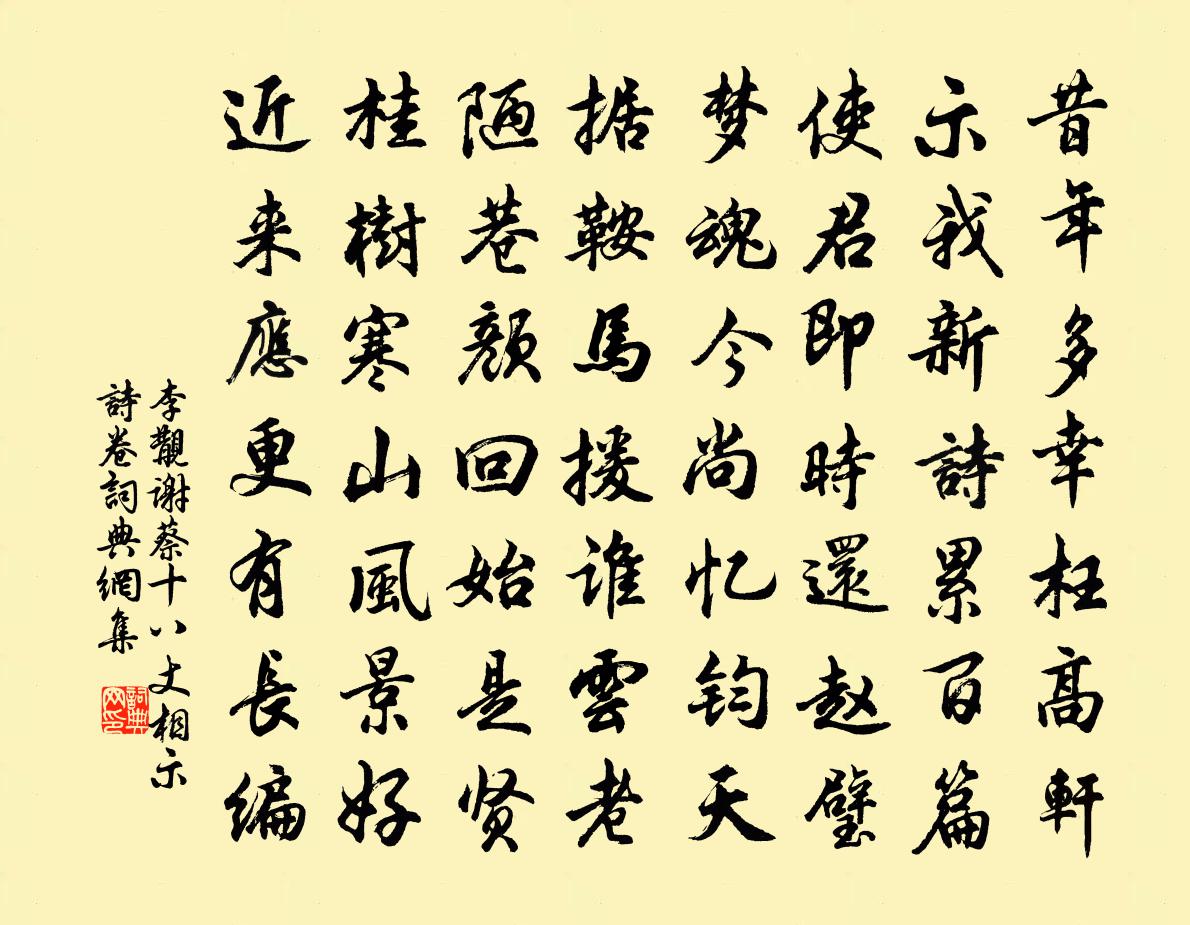 昔年多幸枉高軒
示我新詩累百篇
使君即時還赵璧
梦魂今尚忆钧天
据鞍馬援谁雲老
陋巷颜回始是贤
桂樹寒山風景好
近来應更有長编
李觏谢蔡十八丈相示
詩卷詞典網集
詞典
网印